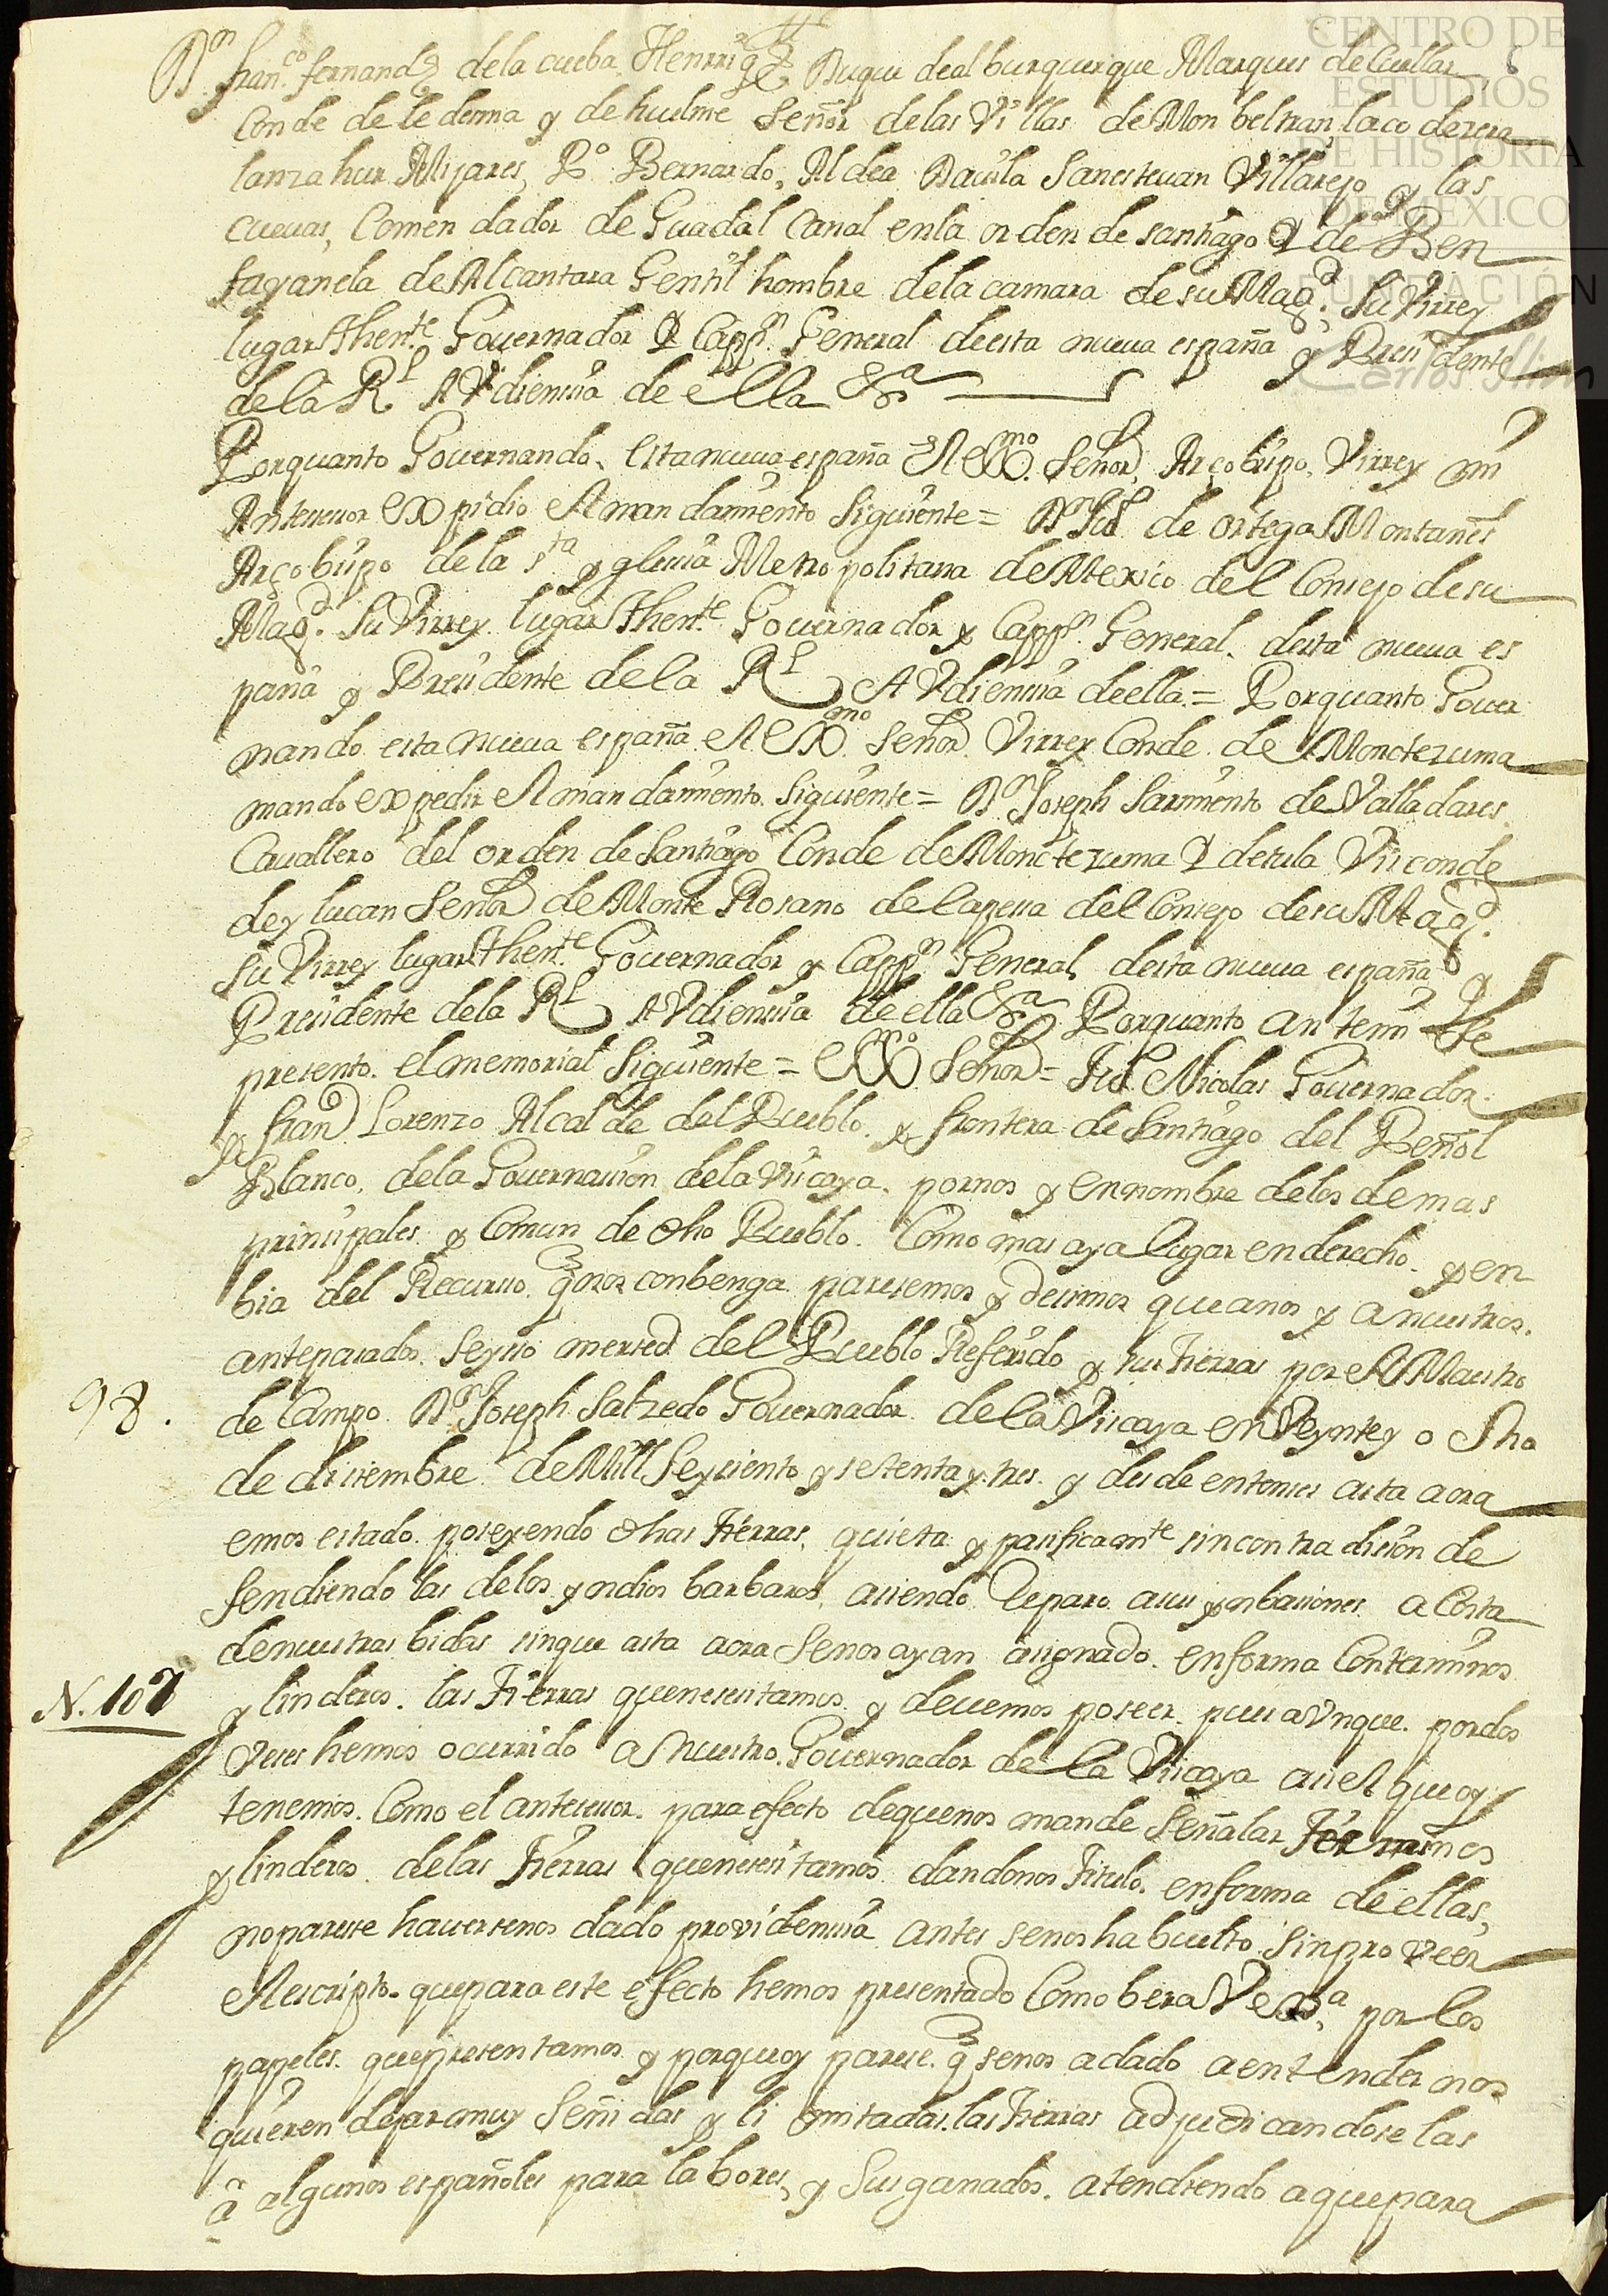 CENTRO DE
ESTUDIOS
DE HISTORIA
DE MÉXICO
FUNDACIÓN
Carlos Slim
Dn Franco fernandz dela cueba Henrriqz Duque dealburquerque Marques deCuellar
Conde de ledesma y de huelme Señor delas Villas de Monbeltran lacodesera
lanzahur Mijares, Po Bernardo, Aldea Dauila Sanestevan Villarejo y las
cuevas, Comendador de Guadalcanal enla orden de santiago Y de Ben
fayanela deAlcantara Gentil hombre dela camara desuMagd. Su Virrey
lugarThente Governador Y Cappn General deesta nueva españa y Presidente
dela Rl AVdiencia de ella &a
Porquanto Governando, esta nueva españa el Exmo Señor Arçobispo Virrey mi
Antecesor expidio el mandamiento siguiente = Dn Jul de ortega Montañes
Arçobispo dela sta yglesia Metropolitana deMexico del Consejo desu
Magd. Su Virrey lugarThente Governador y Cappn General desta nueva es
paña y Presidente dela Rl AVdiencia deella = Porquanto Gover
nando esta nueva españa el Exmo Señor Virrey Conde de Moncteruma
mando expedir el mandamiento siguiente = Dn Joseph Sarmiento de Valladares
Cavallero del orden de Santiago Conde deMoncteruma Y detula Visconde
deylucan Señor deMonte Rosano delapessa del Consejo desuMagd.
su Virrey lugarThente Governador y Cappn General desta nueva españa y
Presidente dela Rl AVdiencia de ella &a Porquanto antemi Se
presento el memorial siguiente = Exmo Señor = Jul Nicolas Governador
y fran Lorenzo Alcalde del Pueblo y frontera de Santiago del Peñol
Blanco, dela Governacion dela Viscaya pornos y ennombre delos demas
prinsipales y Comun de dho Pueblo. Como mas aya lugar enderecho y en
bia del Recurso qnos conbenga paresemos y desimos queanos y anuestros
antepasados seyso mersed del Pueblo Referido y sus tierras por el Maestro
98. de Campo Dn Joseph Salzedo Governador dela Viscaya en Veyntey ocho
de disiembre de Mill Seyscientos y setenta y tres y desde entonses asta aora
emos estado poseyendo dhas tierras, quieta y pasificamte sincontradision de
fendiendo las delos yndios barbaros, asiendo Reparo asus ynbasiones acosta
denuestras bidas sinque asta aora senos ayan asignado enforma Conterminos
N. 107 y linderos las tierras quenesesitamos y devemos poseer pues aVnque pordos
veses hemos ocurrido a Nuestro Governador de la Viscaya asiel queoy
tenemos. Como el antesesor para efecto dequenos mande señalar terminos
y linderos delas tierras quenesesitamos dandonos titulo enforma deellas,
noparese haversenos dado providencia antes senos ha buelto sinproveer
elescripto quepara este efecto hemos presentado como bera Vexa por los
papeles quepresentamos y porqueoy parese q senos adado aentender nos
quieren dejar muy señidas y limitadas las tierras adjudicandoselas
â algunos españoles para labores, y susganados. atendiendo aquepara